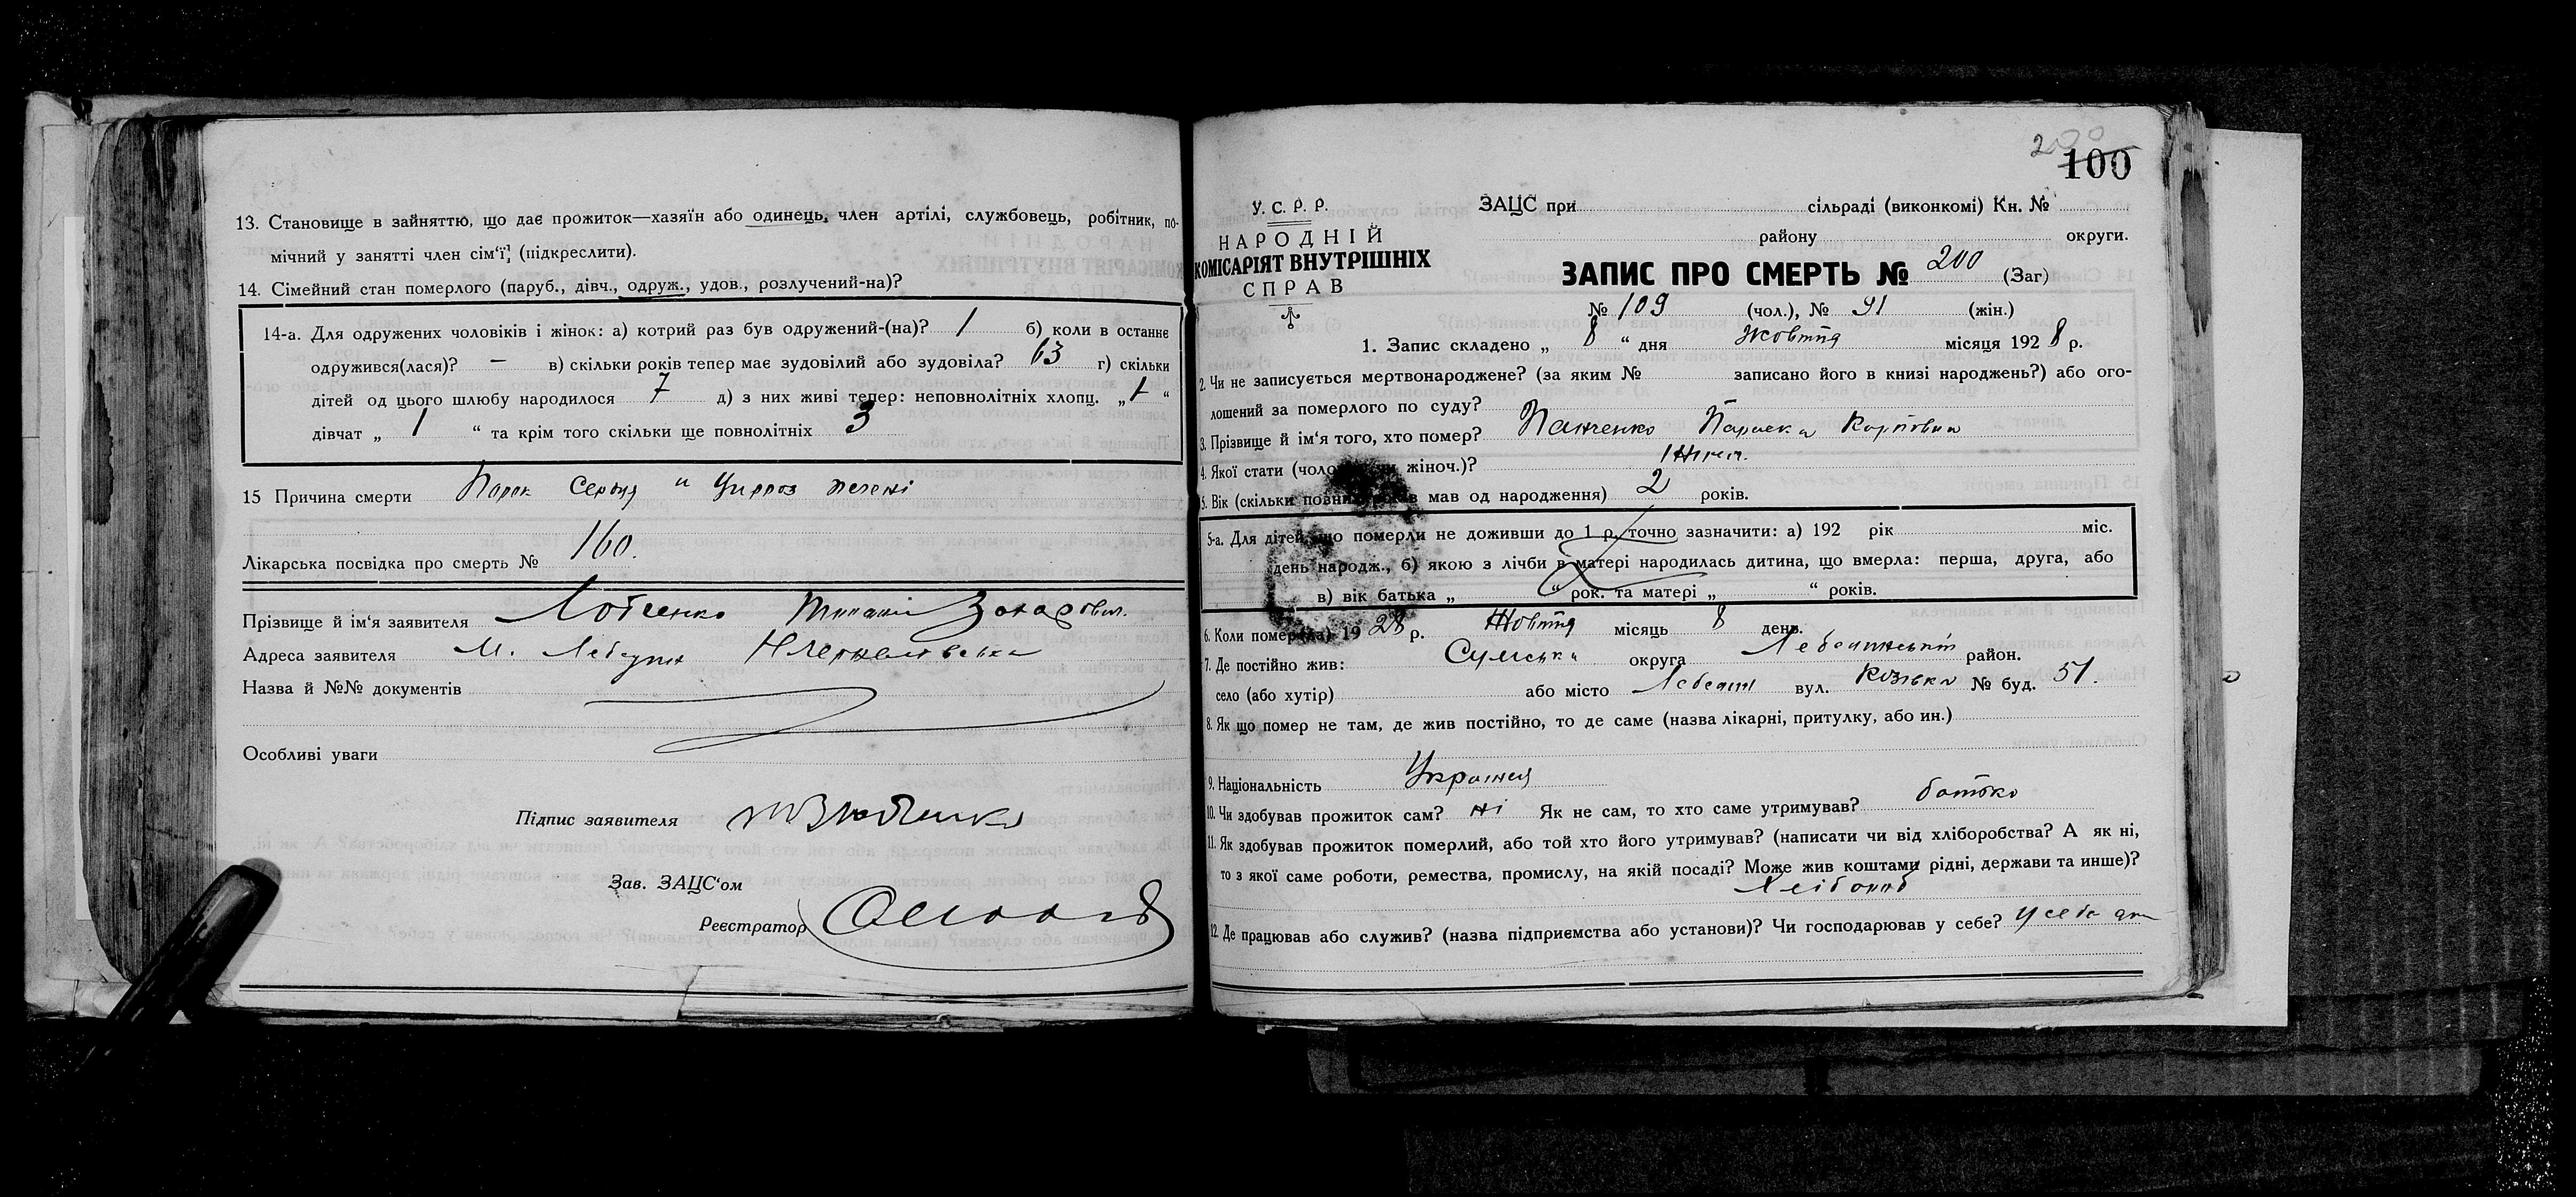 13. Становище в зайняттю, що дає прожиток—хазяїн або одинець, член артілі, службовець, робітник, по-
мічний у занятті член сім'ї, (підкреслити).
14. Сімейний стан померлого (паруб., дівч., одруж., удов., розлучений-на)?
14-а. Для одружених чоловіків і жінок: а) котрий раз був одружений-(на)? 1 б) коли в останнє
одружився(лася)? — в) скільки років тепер має зудовілий або зудовіла? 63 г) скільки
дітей од цього шлюбу народилося 7 д) з них живі тепер: неповнолітніх хлопц. „1“
дівчат „ 1 “ та крім того скільки ще повнолітніх 3
15 Причина смерти Порок Сердця и Цирроз печені
Лікарська посвідка про смерть № 160.
Прізвище й ім'я заявителя Захарович.
Адреса заявителя М. Лебедин
Назва й №№ документів
Особливі уваги
Підпис заявителя
Зав. ЗАЦС'ом
Реєстратор
200
100
У. С. Р. Р.
НАРОДНІЙ
КОМІСАРІЯТ ВНУТРІШНІХ
СПРАВ
ЗАЦС при сільраді (виконкомі) Кн. №
району округи.
ЗАПИС ПРО СМЕРТЬ № 200 (Заг)
№ 109 (чол.), № 91 (жін.)
1. Запис складено „ 8 “ дня Жовтня місяця 1928 р.
2. Чи не записується мертвонароджене? (за яким № записано його в книзі народжень?) або ого-
лошений за померлого по суду?
3. Прізвище й ім'я того, хто помер? Панченко Параска Карповна
4. Якої стати (чоло жіноч.)? Жіноч.
5. Вік (скільки повних років мав од народження) 2 років.
5-а. Для дітей, що померли не доживши до 1 р. точно зазначити: а) 192 рік міс.
день народж., б) якою з лічби в матері народилась дитина, що вмерла: перша, друга, або
в) вік батька „ “ рок. та матері „ “ років.
6. Коли помер(ла) 1928 р. Жовтня місяць 8 день.
7. Де постійно жив: Сумська округа Лебединський район.
село (або хутір) або місто Лебедин вул. Козівка № буд. 51.
8. Як що помер не там, де жив постійно, то де саме (назва лікарні, притулку, або ин.)
9. Національність Українця
10. Чи здобував прожиток сам? ні Як не сам, то хто саме утримував? батько
11. Як здобував прожиток померлий, або той хто його утримував? (написати чи від хліборобства? А як ні,
то з якої саме роботи, ремества, промислу, на якій посаді? Може жив коштами рідні, держави та инше)?
Хлібороб
12. Де працював або служив? (назва підприємства або установи)? Чи господарював у себе? У себе